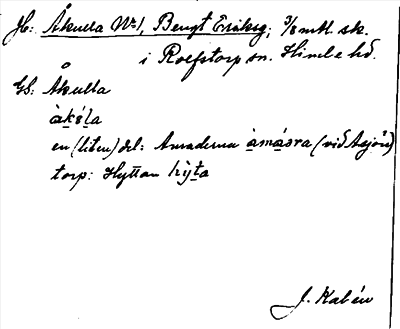 Jb: Åkulla No 1, Bengt Eriksg, 3/8 mtl. sk.
i Rolfstorp sn. Himle hd.
Gb: Åkulla
àké̱la
en (liten) del: Amaderna àmásra (vid Asjön)
torp: Hyttan hỳta
J. Kalén